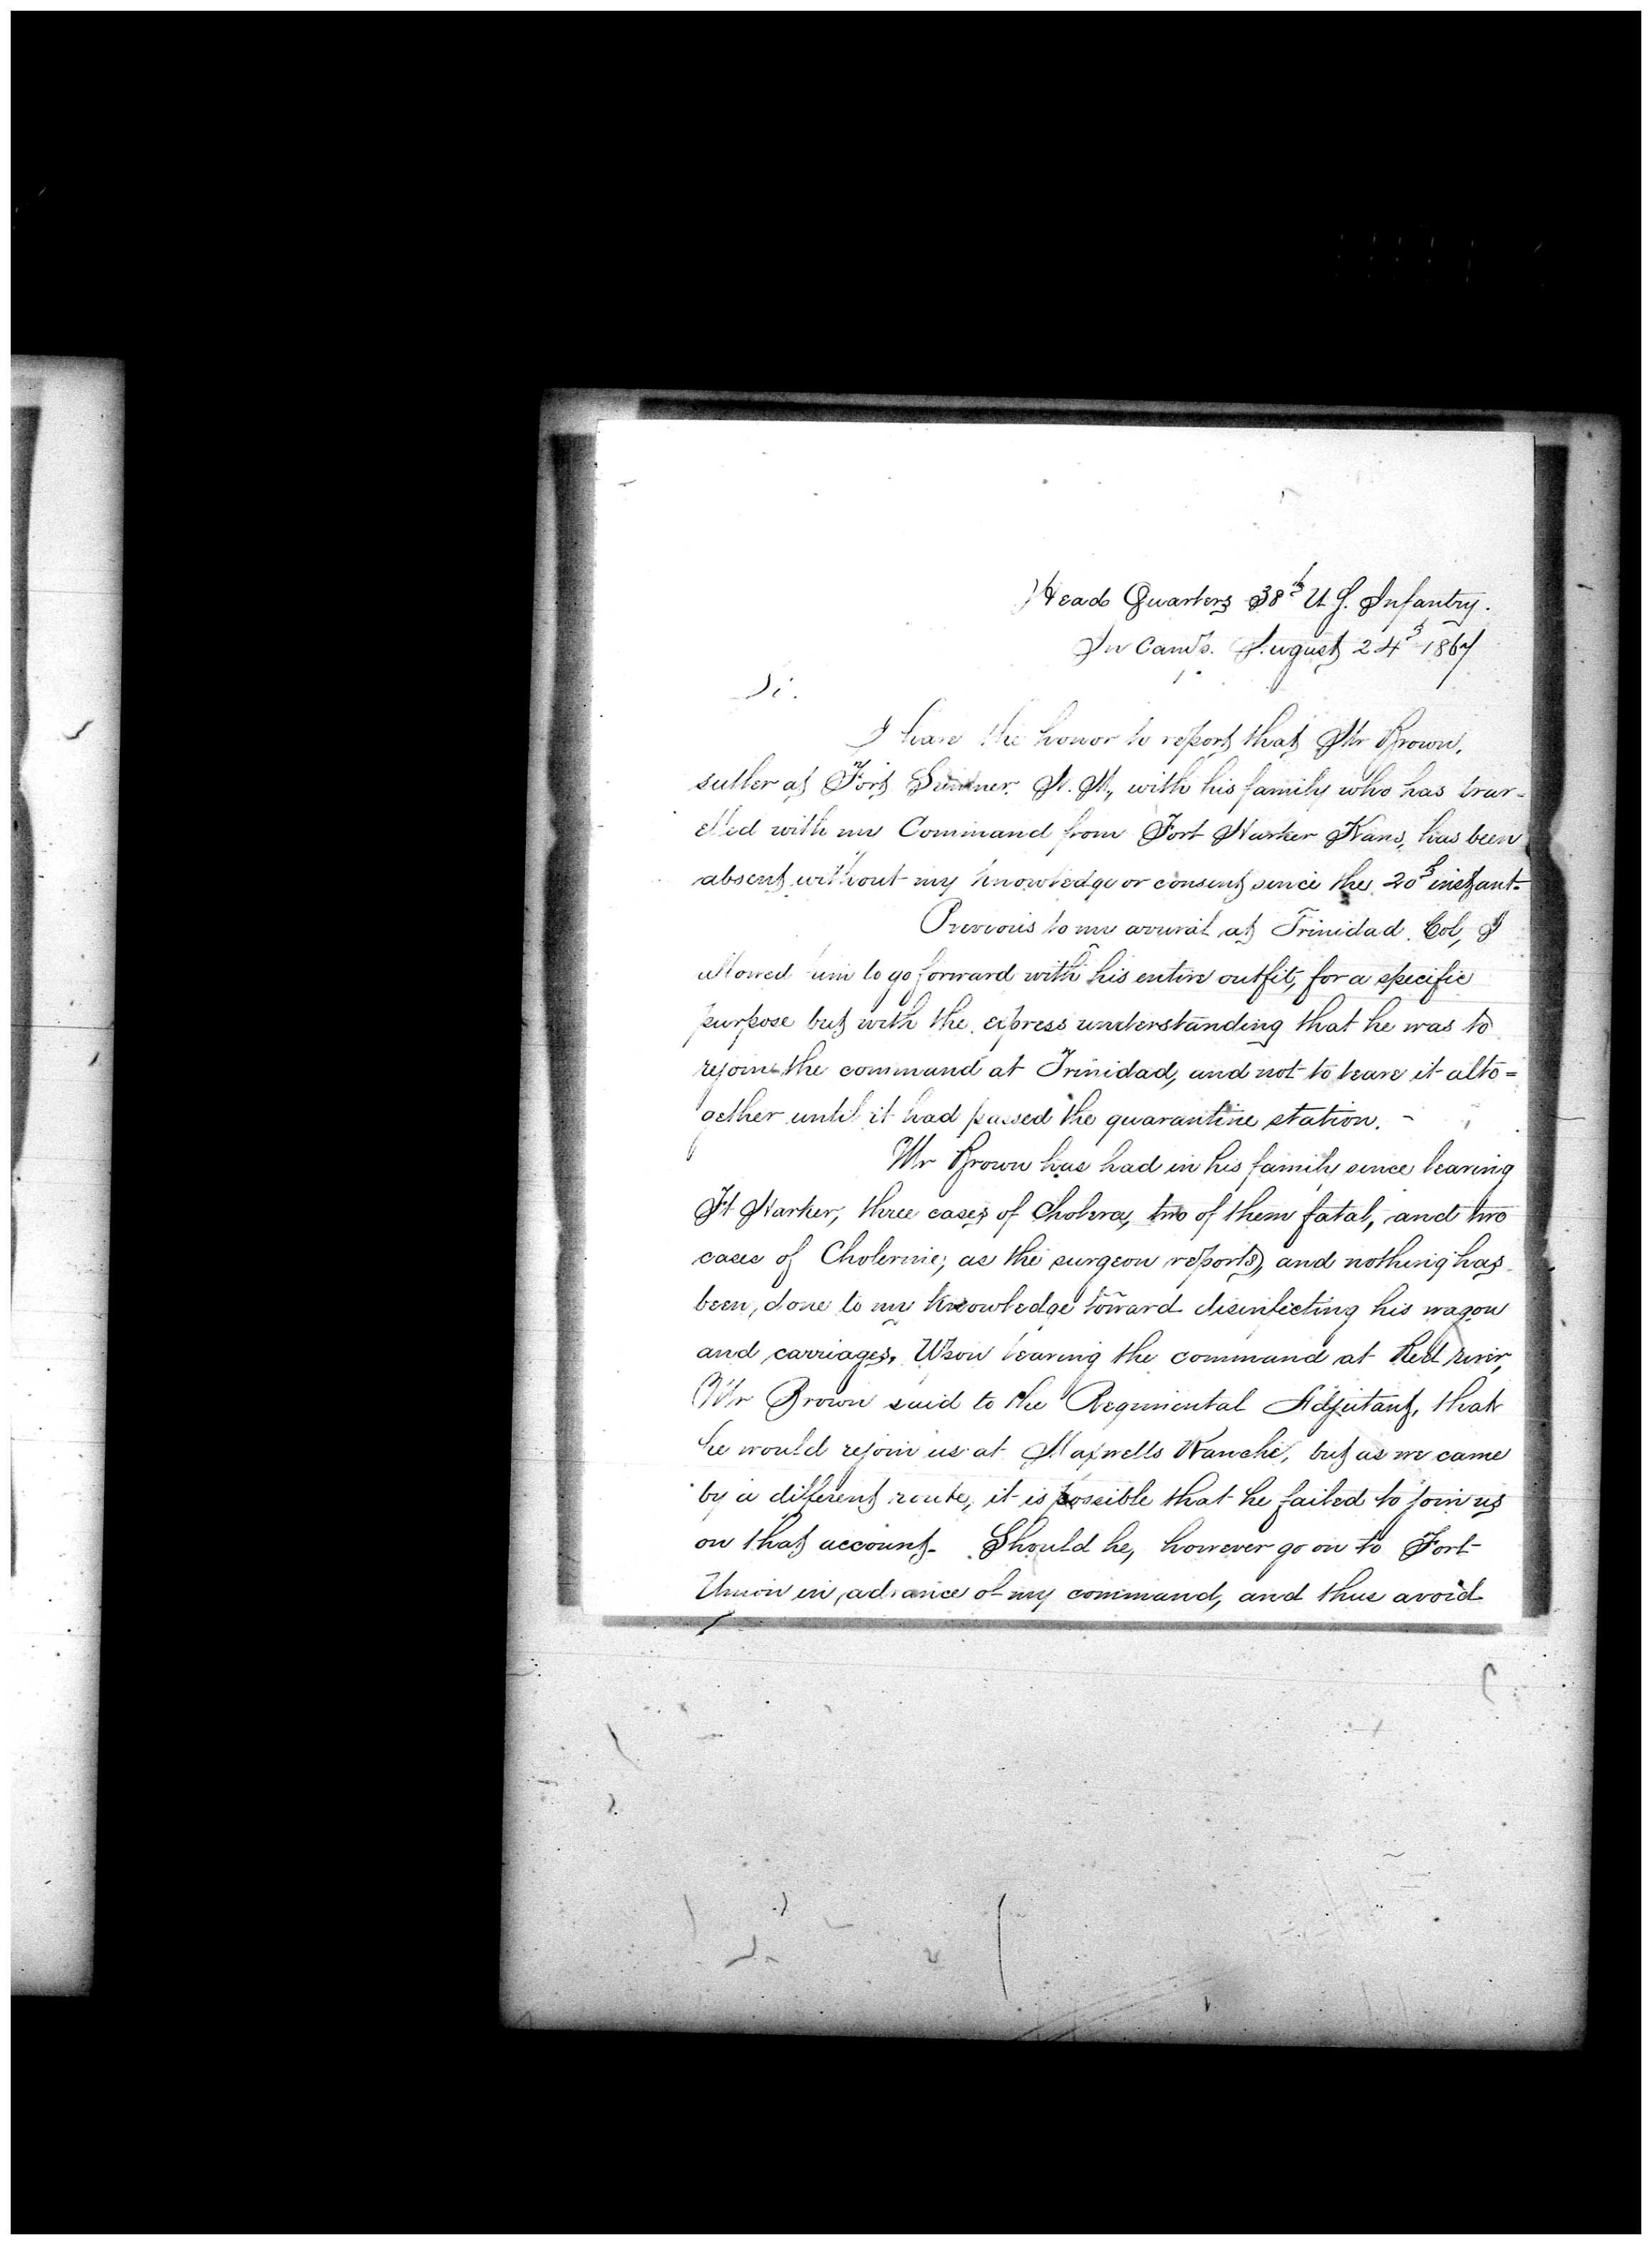 Head Quarters 38th U.S. Infantry.
In Camp. August 24th 1867
Sir.
I have the honor to report that Mr Brown,
sutler at Fort Sumner N. M., with his family who has trav-
elled with my Command from Fort Harker Kans, has been
absent without my knowledge or consent since the 20th instant.
Previous to my arrival at Trinidad Col, I
allowed him to go forward with his entire outfit, for a specific
purpose but with the express understanding that he was to
rejoin the command at Trinidad, and not to leave it alto=
gether until it had passed the quarantine station. -
Mr Brown has had in his family since leaving
Ft Harker, three cases of Cholera, two of them fatal, and two
cases of Cholerine, as the surgeon reports, and nothing has
been, done to my knowledge toward disinfecting his wagon
and carriages. Upon leaving the command at Red river,
Mr Brown said to the Regimental Adjutant, that
he would rejoin us at Maxwells Ranche, but as we came
by a different route, it is possible that he failed to join us
on that account. Should he, however go on to Fort
Union in advance of my command, and thus avoid